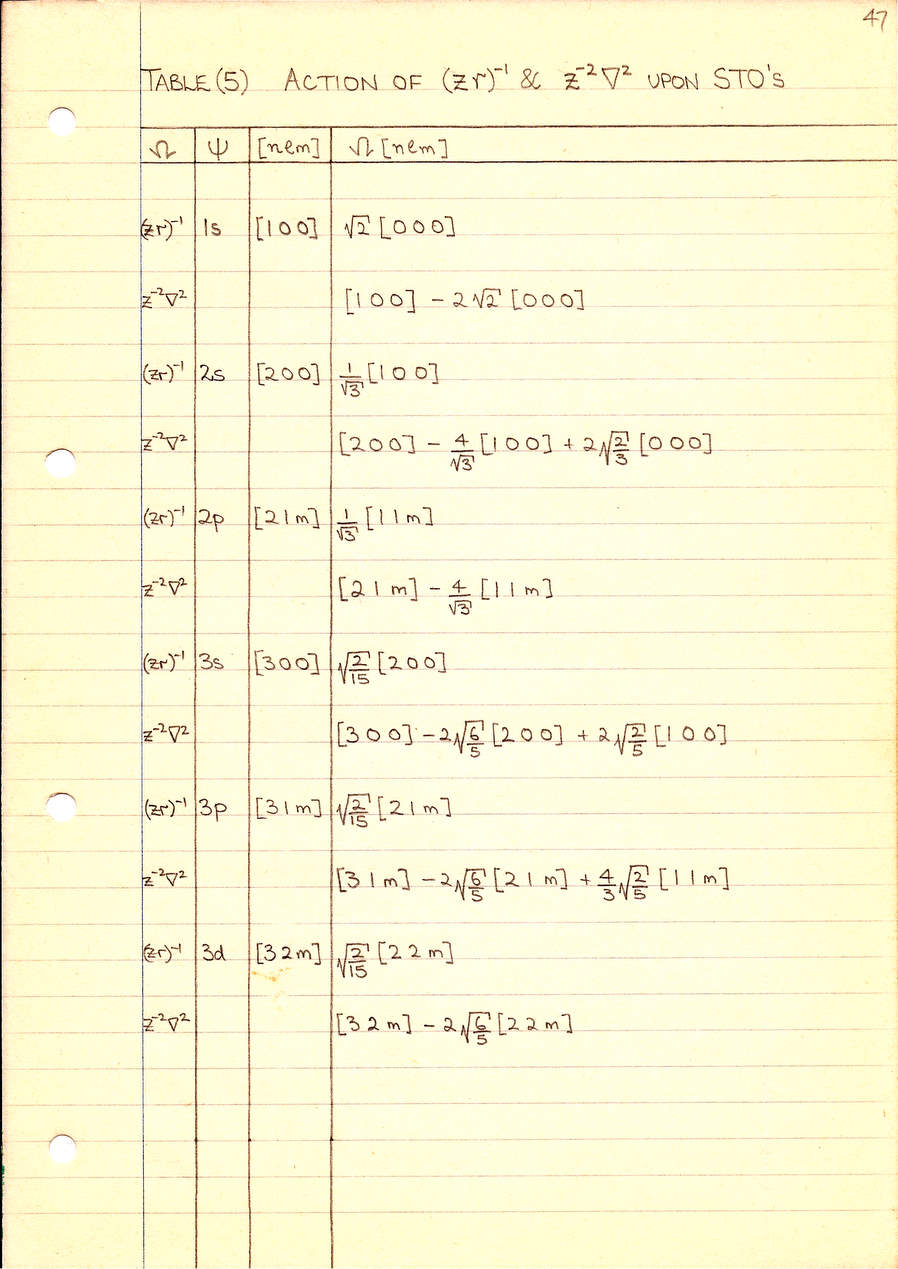 47
TABLE (5) ACTION OF (zr)⁻¹ & z⁻²∇² UPON STO's
Ω ψ [nlm] Ω [nlm]
(zr)⁻¹ 1s [100] √2 [000]
z⁻²∇² [100] − 2√2 [000]
(zr)⁻¹ 2s [200] 1/√3 [100]
z⁻²∇² [200] − 4/√3 [100] + 2√(2/3) [000]
(zr)⁻¹ 2p [21m] 1/√3 [11m]
z⁻²∇² [21m] − 4/√3 [11m]
(zr)⁻¹ 3s [300] √(2/15) [200]
z⁻²∇² [300] − 2√(6/5) [200] + 2√(2/5) [100]
(zr)⁻¹ 3p [31m] √(2/15) [21m]
z⁻²∇² [31m] − 2√(6/5) [21m] + 4/3 √(2/5) [11m]
(zr)⁻¹ 3d [32m] √(2/15) [22m]
z⁻²∇² [32m] − 2√(6/5) [22m]